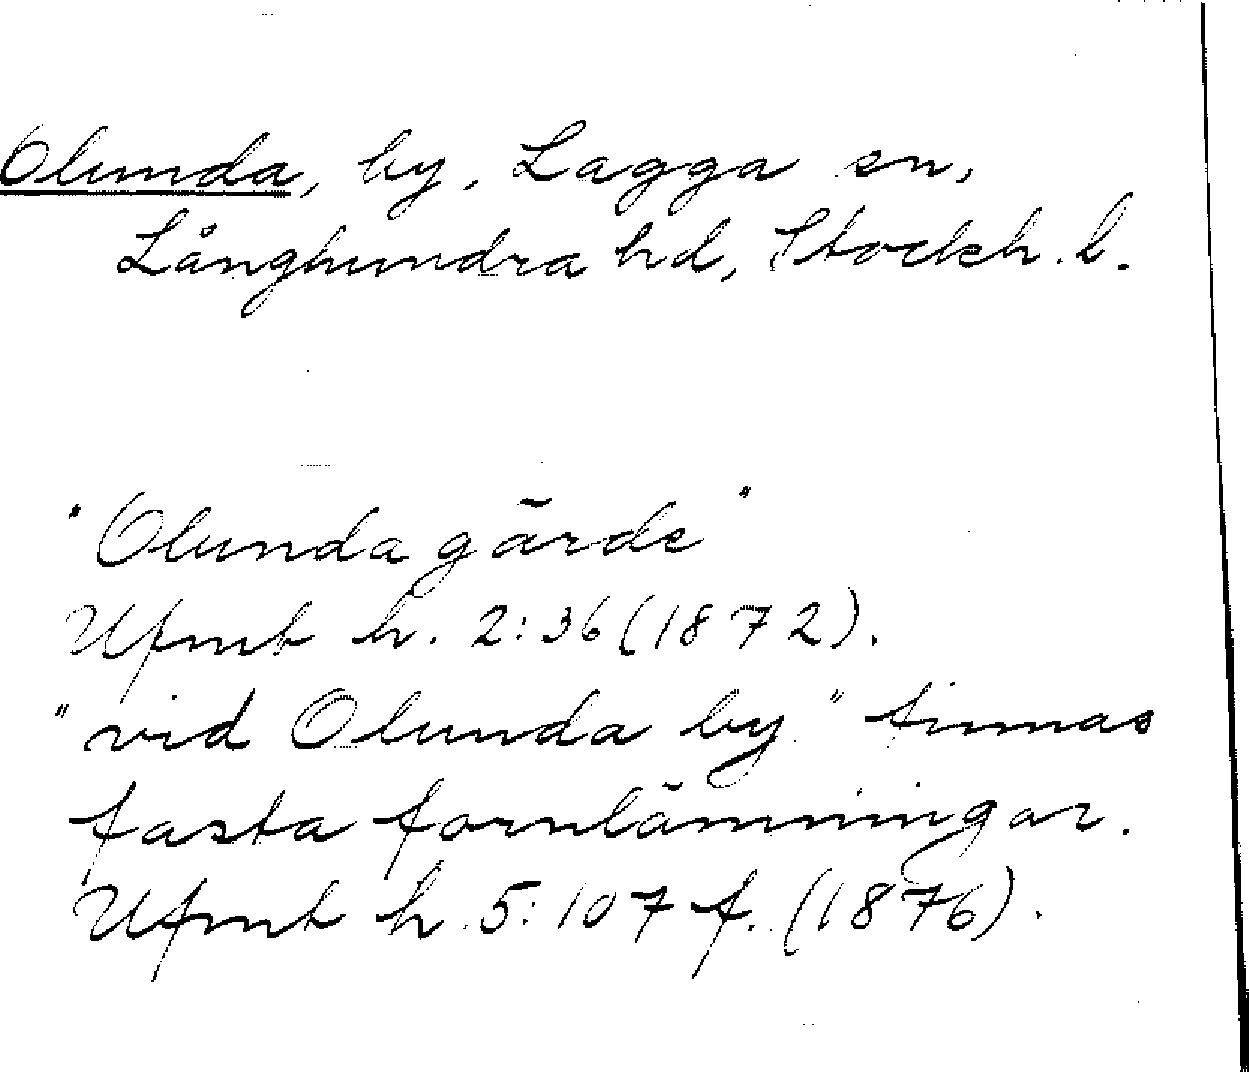 Olunda, by, Lagga sn,
Långhundra hd, Stockh. l.
"Olunda gärde"
Ufmt h. 2:36 (1872).
"vid Olunda by" finnas
fasta fornlämningar.
Ufmt h. 5:107 f. (1876).